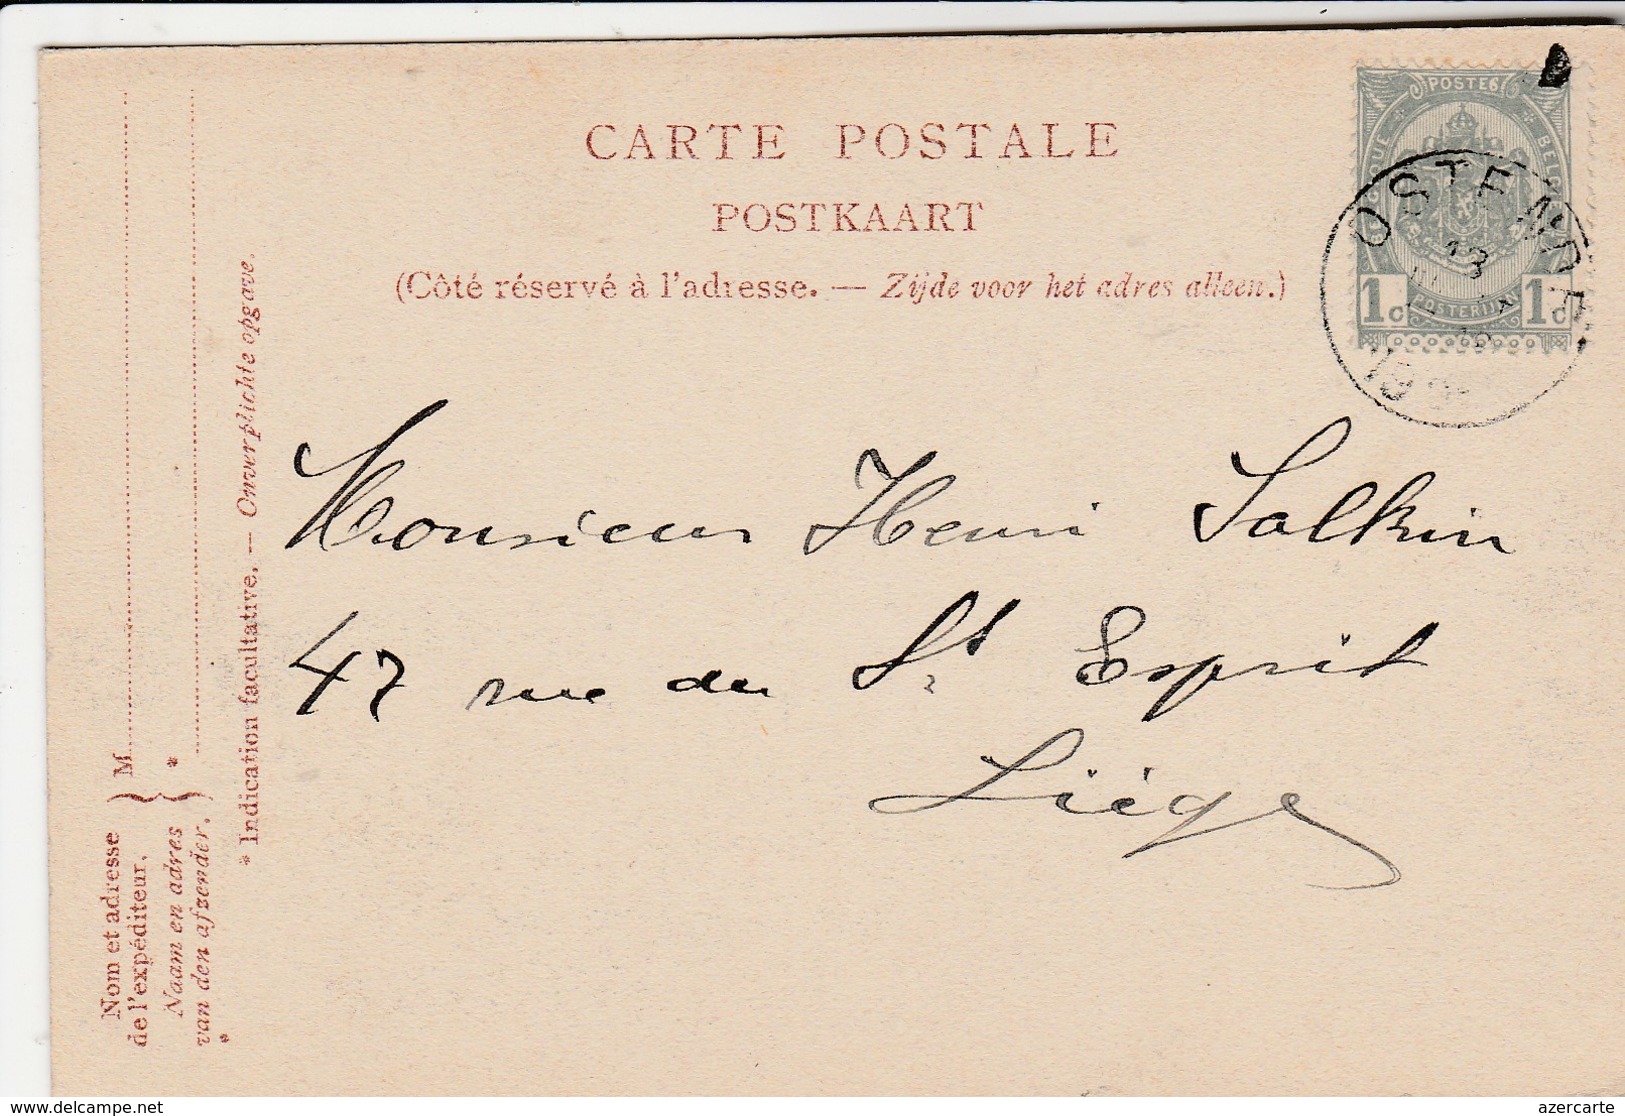 CARTE POSTALE
POSTKAART
(Côté réservé à l'adresse. — Zijde voor het adres alleen.)
POSTES
BELGIQUE
BELGIË
POSTERIJEN
1c 1c
OSTENDE
13
19
Monsieur Henri Salkin
47 rue du St Esprit
Liége
M
*
Nom et adresse
de l'expéditeur.
Naam en adres
van den afzender.
*
* Indication facultative. — Onverplichte opgave.
www.delcampe.net
azercarte